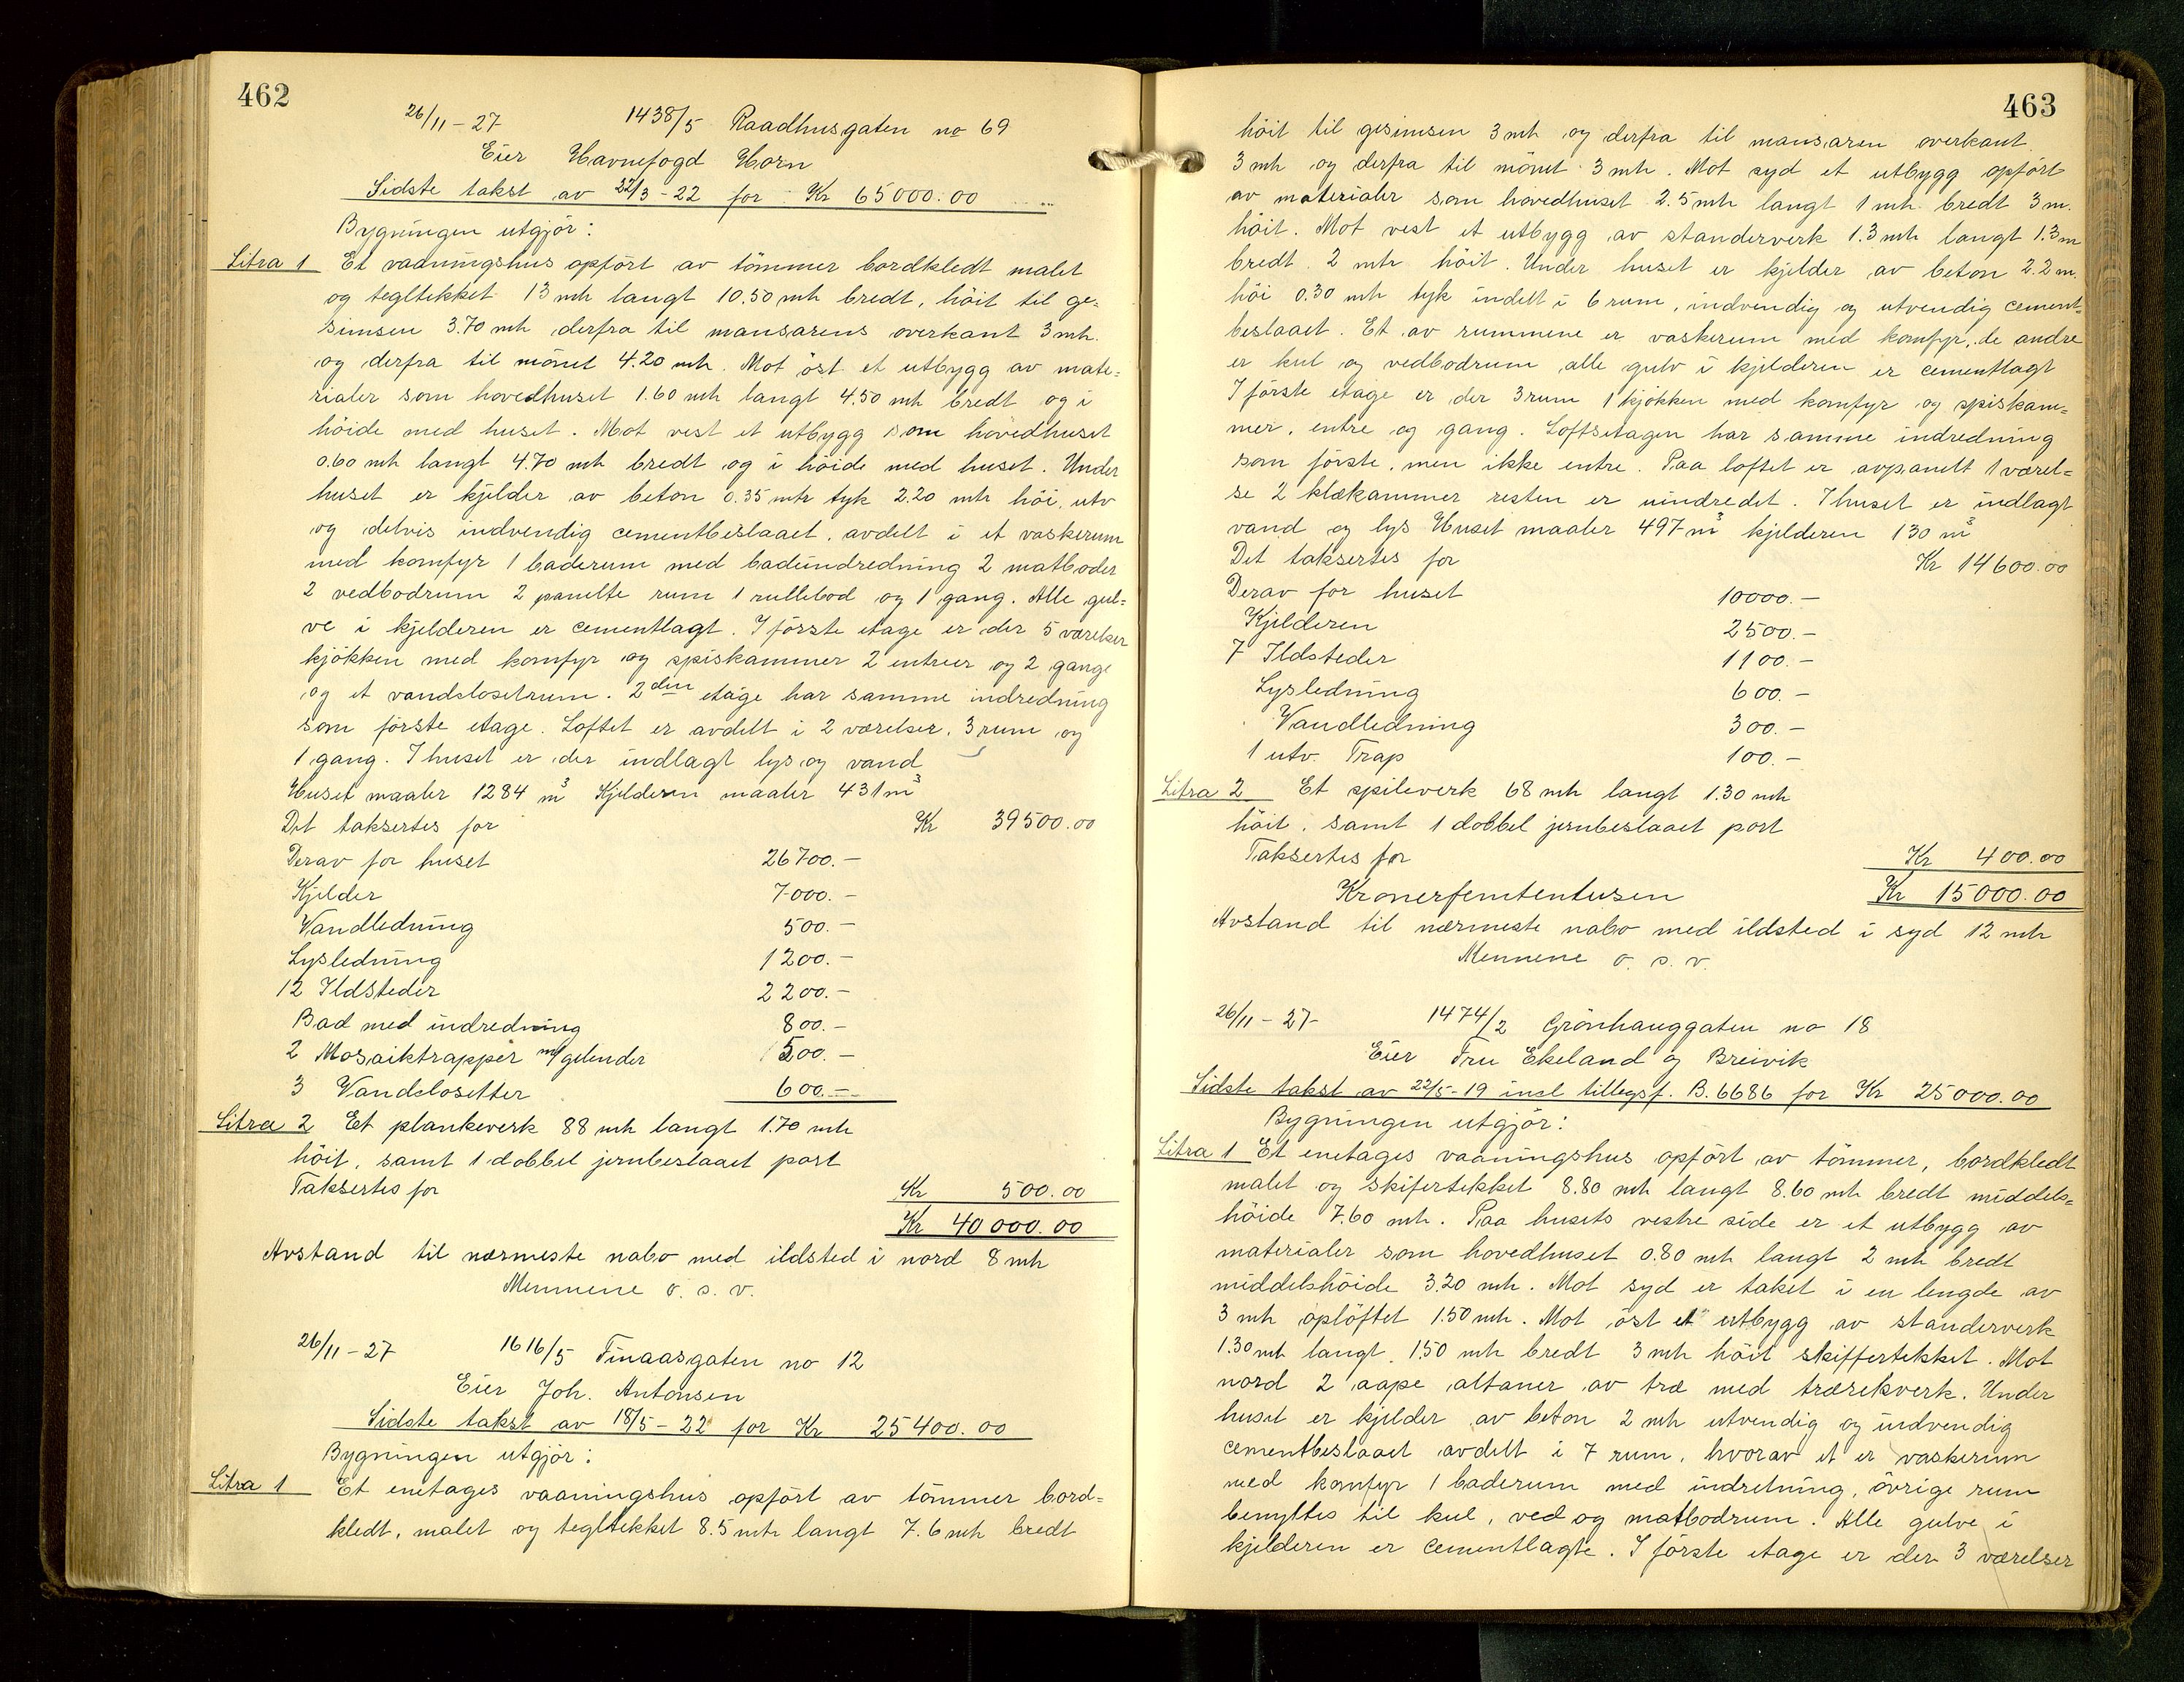 462
26/11 - 27 1438/5 Raadhusgaten no 69
Eier Havnefogd Horn
Sidste takst av 22/3 - 22 for Kr 65000.00
Bygningen utgjör:
Litra 1 Et vaaningshus opfört av tömmer bordkledt malet
og tegltekket 13 mtr langt 10.50 mtr bredt, höit til ge=
simsen 3.70 mtr derfra til mansarens overkant 3 mtr.
og derfra til mönet 4.20 mtr. Mot öst et utbygg av mate=
rialer som hovedhuset 1.60 mtr langt 4.50 mtr bredt og i
höide med huset. Mot vest et utbygg som hovedhuset
0.60 mtr langt 4.70 mtr bredt og i höide med huset. Under
huset er kjelder av beton 0.35 mtr tyk 2.20 mtr höi, utv
og delvis indvendig cementbeslaaet, avdelt i et vaskerum
med komfyr 1 baderum med badeindredning 2 matboder
2 vedbodrum 2 panelte rum 1 rullebod og 1 gang. Alle gul=
ve i kjelderen er cementlagt. I förste etage er der 5 værelser
kjökken med komfyr og spiskammer 2 entreer og 2 gange
og et vandclosetrum. 2den etage har samme indredning
som förste etage. Loftet er avdelt i 2 værelser, 3 rum og
1 gang. I huset er der indlagt lys og vand
Huset maaler 1284 m3 Kjelderen maaler 431 m3
Det taksertes for Kr 39500.00
Derav for huset 26700.-
Kjelder 7000.-
Vandledning 500.-
Lysledning 1200.-
12 Ildsteder 2200.-
Bad med indredning 800.-
2 Mosaiktrapper m/gelender 500.-
3 Vandclosetter 600.-
Litra 2 Et plankeverk 88 mtr langt 1.70 mtr
höit, samt 1 dobbel jernbeslaaet port
Taksertes for Kr 500.00
Kr 40000.00
Avstand til nærmeste nabo med ildsted i nord 8 mtr
Mennene o. s. v.
26/11 - 27 1616/5 Finaasgaten no 12
Eier Joh. Antonsen
Sidste takst av 18/5 - 22 for Kr 25400.00
Bygningen utgjör:
Litra 1 Et enetages vaaningshus opfört av tömmer bord=
kledt, malet og tegltekket 8.5 mtr langt 7.6 mtr bredt
463
höit til gesimsen 3 mtr og derfra til mansaren overkant
3 mtr og derfra til mönet 3 mtr. Mot syd et utbygg opfört
av materialer som hovedhuset 2.5 mtr langt 1 mtr bredt 3 m.
höit. Mot vest et utbygg av standerverk 1.3 mtr langt 1.3 m
bredt 2 mtr höit. Under huset er kjelder av beton 2.2 m.
höi 0.30 mtr tyk indelt i 6 rum, indvendig og utvendig cement=
beslaaet. Et av rummene er vaskerum med komfyr, de andre
er kul og vedbodrum alle gulv i kjelderen er cementlagt
I förste etage er der 3 rum 1 kjökken med komfyr og spiskam=
mer, entre og gang. Loftsetagen har samme indredning
som förste, men ikke entre. Paa loftet er avpanelt 1 værel=
se 2 klækammer resten er uindredet. I huset er indlagt
vand og lys Huset maaler 497 m3 kjelderen 130 m3
Det taksertes for Kr 14600.00
Derav for huset 10000.-
Kjelderen 2500.-
7 Ildsteder 1100.-
Lysledning 600.-
Vandledning 300.-
1 utv. Trap 100.-
Litra 2 Et spileverk 68 mtr langt 1.30 mtr
höit, samt 1 dobbel jernbeslaaet port
Taksertes for Kr 400.00
Kronerfemtentusen Kr 15000.00
Avstand til nærmeste nabo med ildsted i syd 12 mtr
Mennene o. s. v.
26/11 - 27- 1474/2 Grönhauggaten no 18
Eier Fru Ekeland og Breivik
Sidste takst av 22/5 - 19 incl tillegsf. B. 6686 for Kr 25000.00
Bygningen utgjör:
Litra 1 Et enetages vaaningshus opfört av tömmer, bordkledt
malet og skifertekket 8.80 mtr langt 8.60 mtr bredt middels=
höide 7.60 mtr. Paa husets vestre side er et utbygg av
materialer som hovedhuset 0.80 mtr langt 2 mtr bredt
middelshöide 3.20 mtr. Mot syd er taket i en lengde av
3 mtr oplöftet 1.50 mtr. Mot öst et utbygg av standerverk
1.30 mtr langt, 1.50 mtr bredt 3 mtr höit skiffertekket. Mot
nord 2 aape altaner av træ med trærekverk. Under
huset er kjelder av beton 2 mtr utvendig og indvendig
cementbeslaaet avdelt i 7 rum, hvorav et er vaskerum
med komfyr 1 baderum med indretning, övrige rum
benyttes til kul, ved og matbodrum. Alle gulve i
kjelderen er cementlagte. I förste etage er der 3 værelser